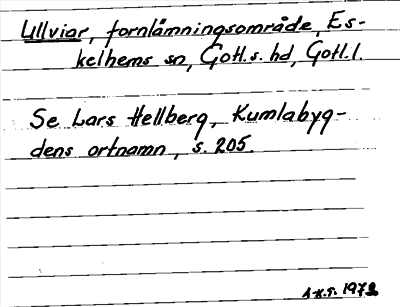 Ullviar, fornlämningsområde, Es-
kelhems sn, Gotl.s. hd, Gotl.l.
Se Lars Hellberg, Kumlabyg-
dens ortnamn, s. 205.
A-K.S. 1972